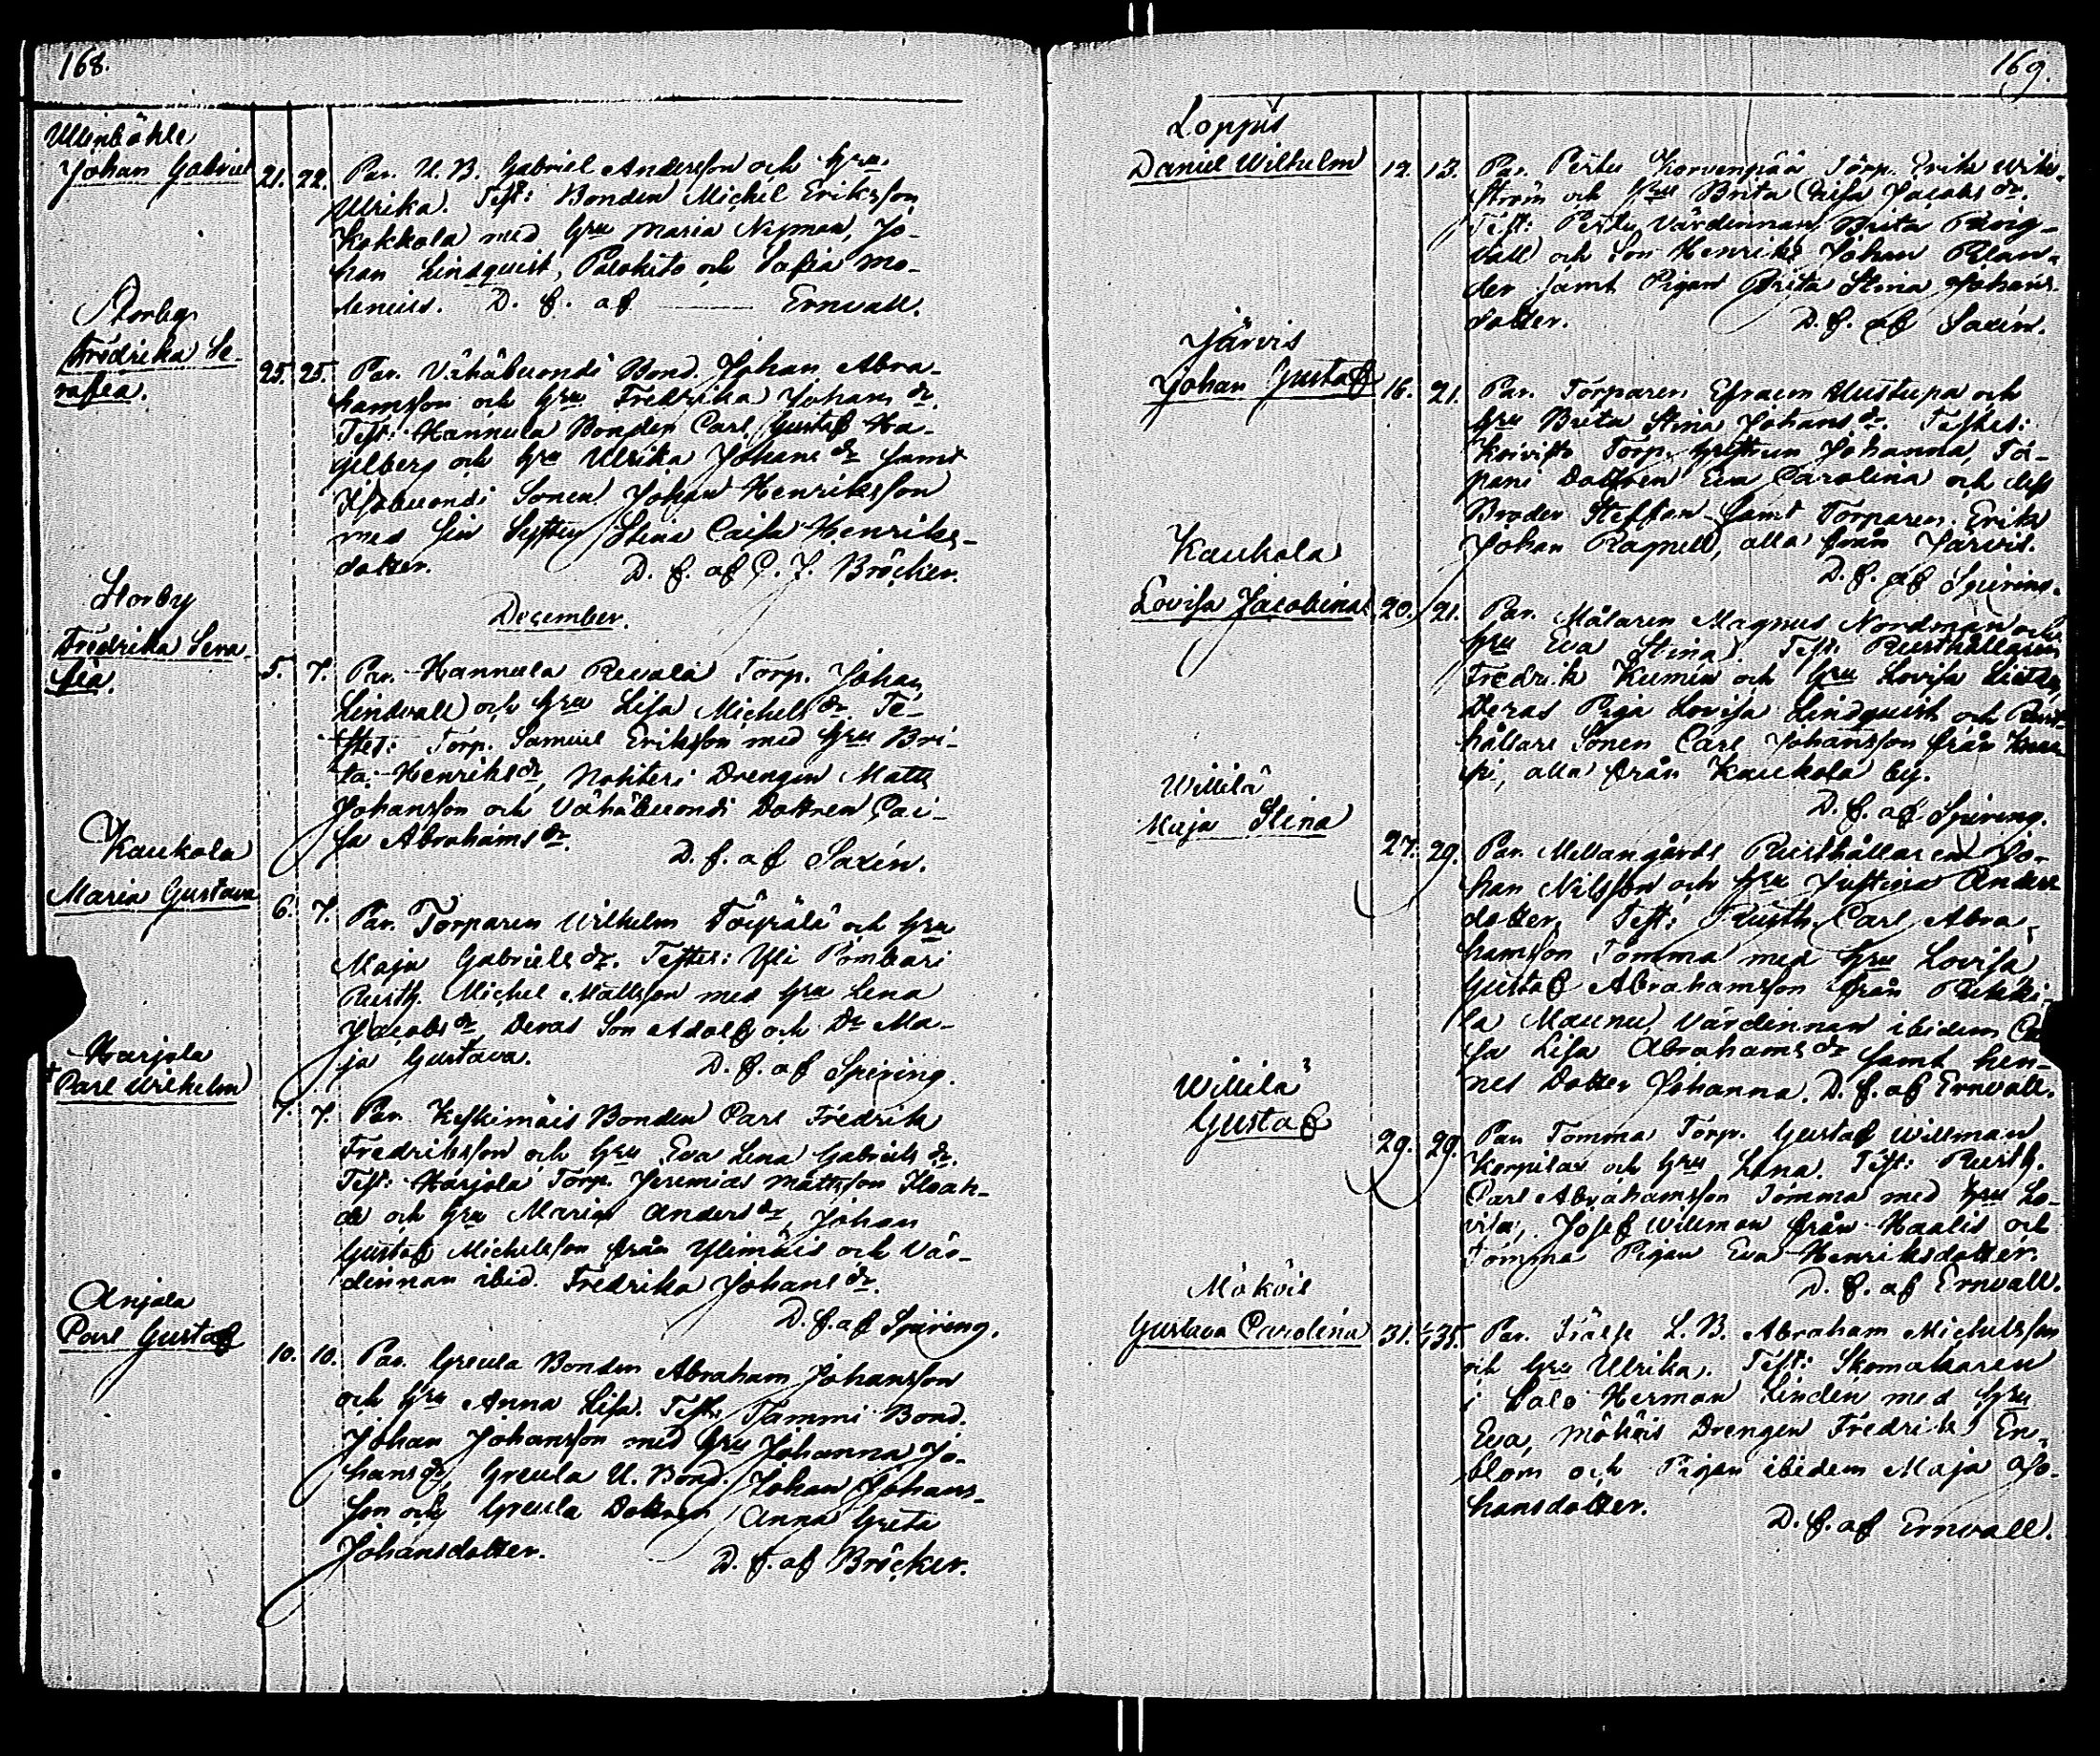 168.
Ullenböhle
Johan Gabriel 21. 22. Par. U. B. Gabriel Andersson och Hru
Ulrika. Test: Bonden Michel Eriksson
Kokkola med Hru Maria Nyman, Jo-
han Lindquist, Palokito och Safia Mo-
denius. D. f. af Ernvall.
Storby
Fredrika Se-
rafia. 25. 25. Par. Vähäbuondi Bond. Johan Abra-
hamsson och Hru Fredrika Johans dr.
Test: Hannula Bonden Carl Gustaf Ha-
gelberg och Hru Ulrika Johans dr samt
Isobuondi Sonen Johan Henriksson
med sin Syster Stina Caisa Henriks-
dotter. D. f. af C. J. Bröcker.
December.
Storby
Fredrika Sera-
fia. 5. 7. Par. Hannula Revalä Torp. Johan
Lindvall och Hru Lisa Michels dr. Te-
stes: Torp. Samuel Eriksson med Hru Bri-
ta Henriks dr, Nohteri Drengen Matts
Johansson och Vähäbuondi Dottren Cai-
sa Abrahams dr. D. f. af Saxén.
Kaukola
Maria Gustava 6. 7. Par. Torparen Wilhelm Töyrälä och Hru
Maja Gabriels dr. Testes: Yli Pombari
Rusth. Michel Mattsson med Hru Lena
Jacobs dr, Deras Son Adolf och Dr Ma-
ja Gustava. D. f. af Spiring.
Harjola
+ Carl Wilhelm 7. 7. Par. Keskimäis Bonden Carl Fredrik
Fredriksson och Hru Eva Lena Gabriels dr.
Test: Harjola Torp. Jeremias Mattsson
och Hru Maria Anders dr, Johan
Gustaf Michelsson från Ylimäis och Vär-
dinnan ibid. Fredrika Johans dr.
D. f. af Spiring.
Anjala
Carl Gustaf 10. 10. Par. Greula Bonden Abraham Johansson
och Hru Anna Lisa. Test: Tammi Bond.
Johan Johansson med Hru Johanna Jo-
hans dr, Greula U. Bond. Johan Johans-
son och Greula Dottren Anna Greta
Johansdotter. D. f. af Bröcker.
169.
Loppis
Daniel Wilhelm 12. 13. Par. Perttu Korvenpää Torp. Erik Wik-
ström och Hru Brita Caisa Jacobs dr.
Test: Perttu Värdinnan Brita
och Son Henrik Johan
samt Pigan Brita Stina Johans-
dotter. D. f. af Saxén.
Järvis
Johan Gustaf 16. 21. Par. Torparen Efraem Mustupa och
Hru Brita Stina Johans dr. Testes:
Koivisto Torp. Hustrun Johanna, Ta-
pani Dottren Eva Carolina och dess
Broder Steffan samt Torparen Erik
Johan Ragnell, alla från Jarvis.
D. f. af Spiring.
Kaukola
Lovisa Jacobina 20. 21. Par. Målaren Magnus Nordman och
Hru Eva Stina. Test: Rusthållaren
Fredrik Kumin och Hru Lovisa
Deras Piga Lovisa Lindquist och Rust-
hållare Sonen Carl Johansson från
alla från Kaukola by.
D. f. af Spiring.
Willilä
Maja Stina 27. 29. Par. Mellangårds Rusthållaren Jo-
han Nilsson och Hru Justina Anders
dotter. Test: Rusth. Carl Abra-
hamsson Tomma med Hru Lovisa
Gustaf Abrahamsson från Pukki-
la Maunu, Värdinnan ibidem Cai
sa Lisa Abrahams dr samt hen-
nes Dotter Johanna. D. f. af Ernvall.
Willilä
Gustaf 29. 29. Par. Tomma Torp. Gustaf Willman
Korpilax och Hru Lena. Test: Rusth.
Carl Abrahamsson Tomma med Hru Lo-
visa, Josef Willman från Haalis och
Tomma Pigan Eva Henriksdotter.
D. f. af Ernvall.
Mököis
Gustava Carolina 31. 1/1 35. Par. Frälse L. B. Abraham Michelsson
och Hru Ulrika. Test: Skomakaren
i Salo Herman Linden med Hru
Eva, Mököis Drengen Fredrik En-
blom och Pigan ibidem Maja Jo-
hansdotter. D. f. af Ernvall.